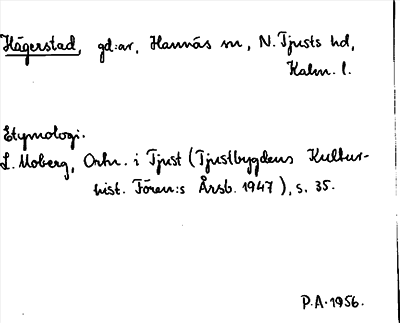 Hägerstad, gd:ar, Hannäs sn, N. Tjusts hd,
Kalm. l.
Etymologi.
L. Moberg, Ortn. i Tjust (Tjustbygdens Kultur-
hist. Fören:s Årsb. 1947), s. 35.
P.A. 1956.